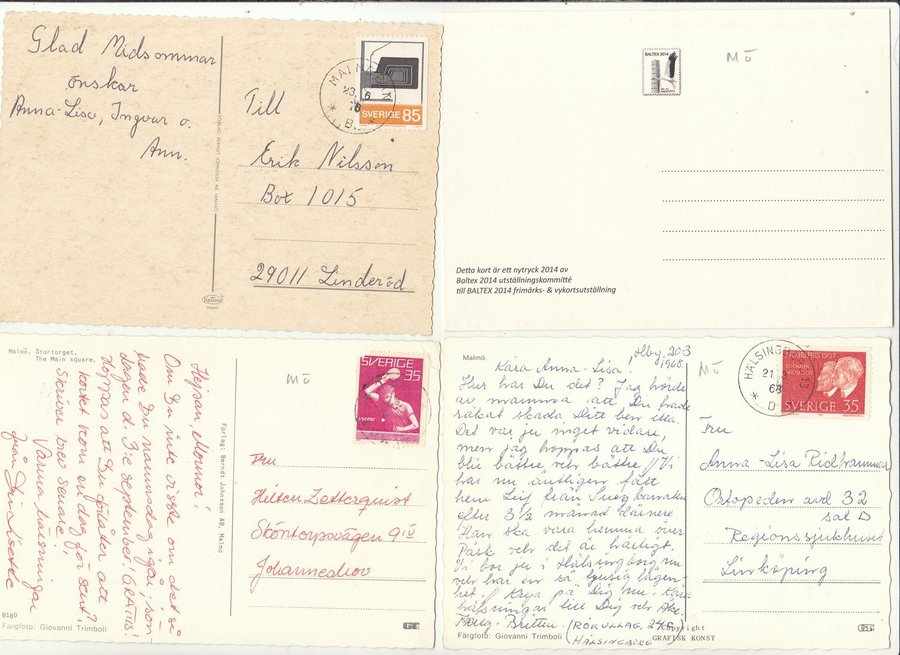 Glad Midsommar
önskar
Anna-Lisa, Ingvar o.
Ann.
MALMÖ
23. 6
76
SVERIGE 85
Till
Erik Nilsson
Box 1015
29011 Linderöd
BALTEX 2014
Mö
Detta kort är ett nytryck 2014 av
Baltex 2014 utställningskommitté
till BALTEX 2014 frimärks- & vykortsutställning
Malmö. Stortorget.
The Main square.
Mö
SVERIGE
35
Hejsan, Mormor!
Om Du inte visste om det så
hade Du namnsdag igår, sön-
dagen d 3:e september! GRATTIS!
Hoppas att Du förlåter att
kortet kom en dag för sent?
Skriver brev senare!
Varma hälsningar
från
Förlag: Berndt Johnsson AB, Malmö
Fru
Hilten Zetterquist
Sköntorpsvägen 9 IV
Johanneshov
8180
Färgfoto: Giovanni Trimboli
Malmö.
Hlbg 20-3
1968.
Mö
Kära Anna-Lisa!
Hur har Du det? Jag hörde
av mamma att Du hade
råkat skada Ditt ben illa.
Det var ju inget vidare,
men jag hoppas att Du
blir bättre och bättre. Vi
har nu äntligen fått
hem Leif från Suezkanalen
efter 3 1/2 månad
Han ska vara hemma över
Påsk och det är härligt.
Vi bor ju i Hälsingborg nu
och har en så tjusig lägen-
het. Krya på Dig nu. Kära
hälsningar till Dig och Åke
Maj-Britten
HÄLSINGBORG
21. 3
68
D
NOBELPRIS 1907
SVERIGE 35
Fru
Anna-Lisa Ridhammar
Ortopeden avd 32
sal D
Regionssjukhuset
Linköping
Copyright
GRAFISK KONST
Färgfoto: Giovanni Trimboli